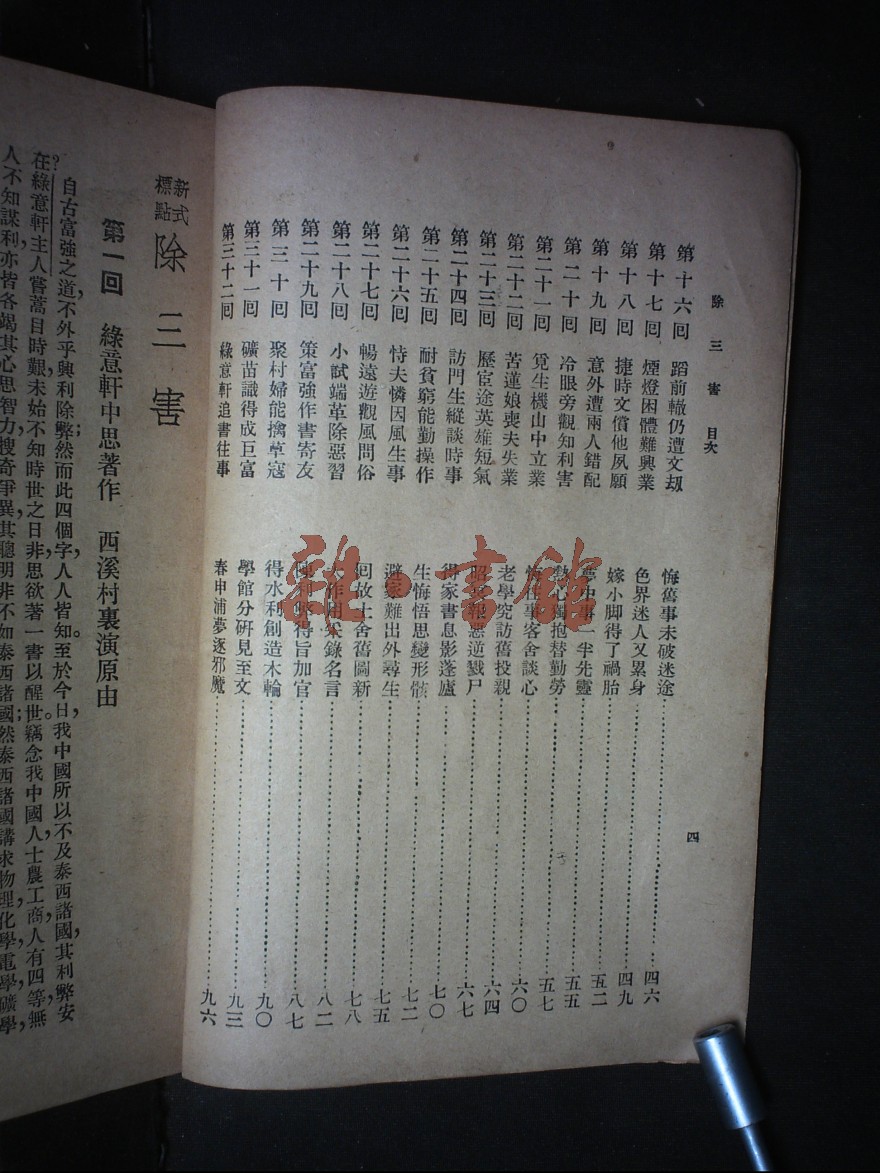 除三害 目次
四
第十六回 蹈前轍仍遭文刼 悔舊事未破迷途 四六
第十七回 煙燈困體難興業 色界迷人又累身 四九
第十八回 捷時文償他夙願 嫁小脚得了禍胎 五二
第十九回 意外遭兩人錯配 夢中事一半先靈 五五
第二十回 冷眼旁觀知利害 熱心獨抱替勤勞 五七
第二十一回 覓生機山中立業 悔往事客舍談心 六〇
第二十二回 苦蓮娘喪夫失業 老學究訪舊投親 六四
第二十三回 歷宦途英雄短氣 昭冥報惡逆戮尸 六七
第二十四回 訪門生縱談時事 得家書息影蓬廬 七〇
第二十五回 耐貧窮能勤操作 生悔悟思變形骸 七二
第二十六回 恃夫憐因風生事 避家難出外尋生 七五
第二十七回 暢遠遊觀風問俗 回故土舍舊圖新 七八
第二十八回 小試端革除惡習 大作用采錄名言 八二
第二十九回 策富強作書寄友 陳利弊得旨加官 八七
第三十回 聚村婦能擒草寇 得水利創造木輪 九〇
第三十一回 礦苗識得成巨富 學館分硏見至文 九三
第三十二回 綠意軒追書往事 春申浦夢逐邪魔 九六
新式標點 除三害
第一回 綠意軒中思著作 西溪村裏演原由
自古富強之道，不外乎興利除弊；然而此四個字，人人皆知。至於今日，我中國所以不及泰西諸國，其利弊安
？在綠意軒主人嘗蒿目時艱，未始不知時世之日非，思欲著一書以醒世。竊念我中國人士農工商，人有四等，無
人不知謀利，亦皆各竭其心思智力，搜奇爭異，其聰明非不如泰西諸國；然泰西諸國講求物理，化學，電學，礦學，
雜·書館